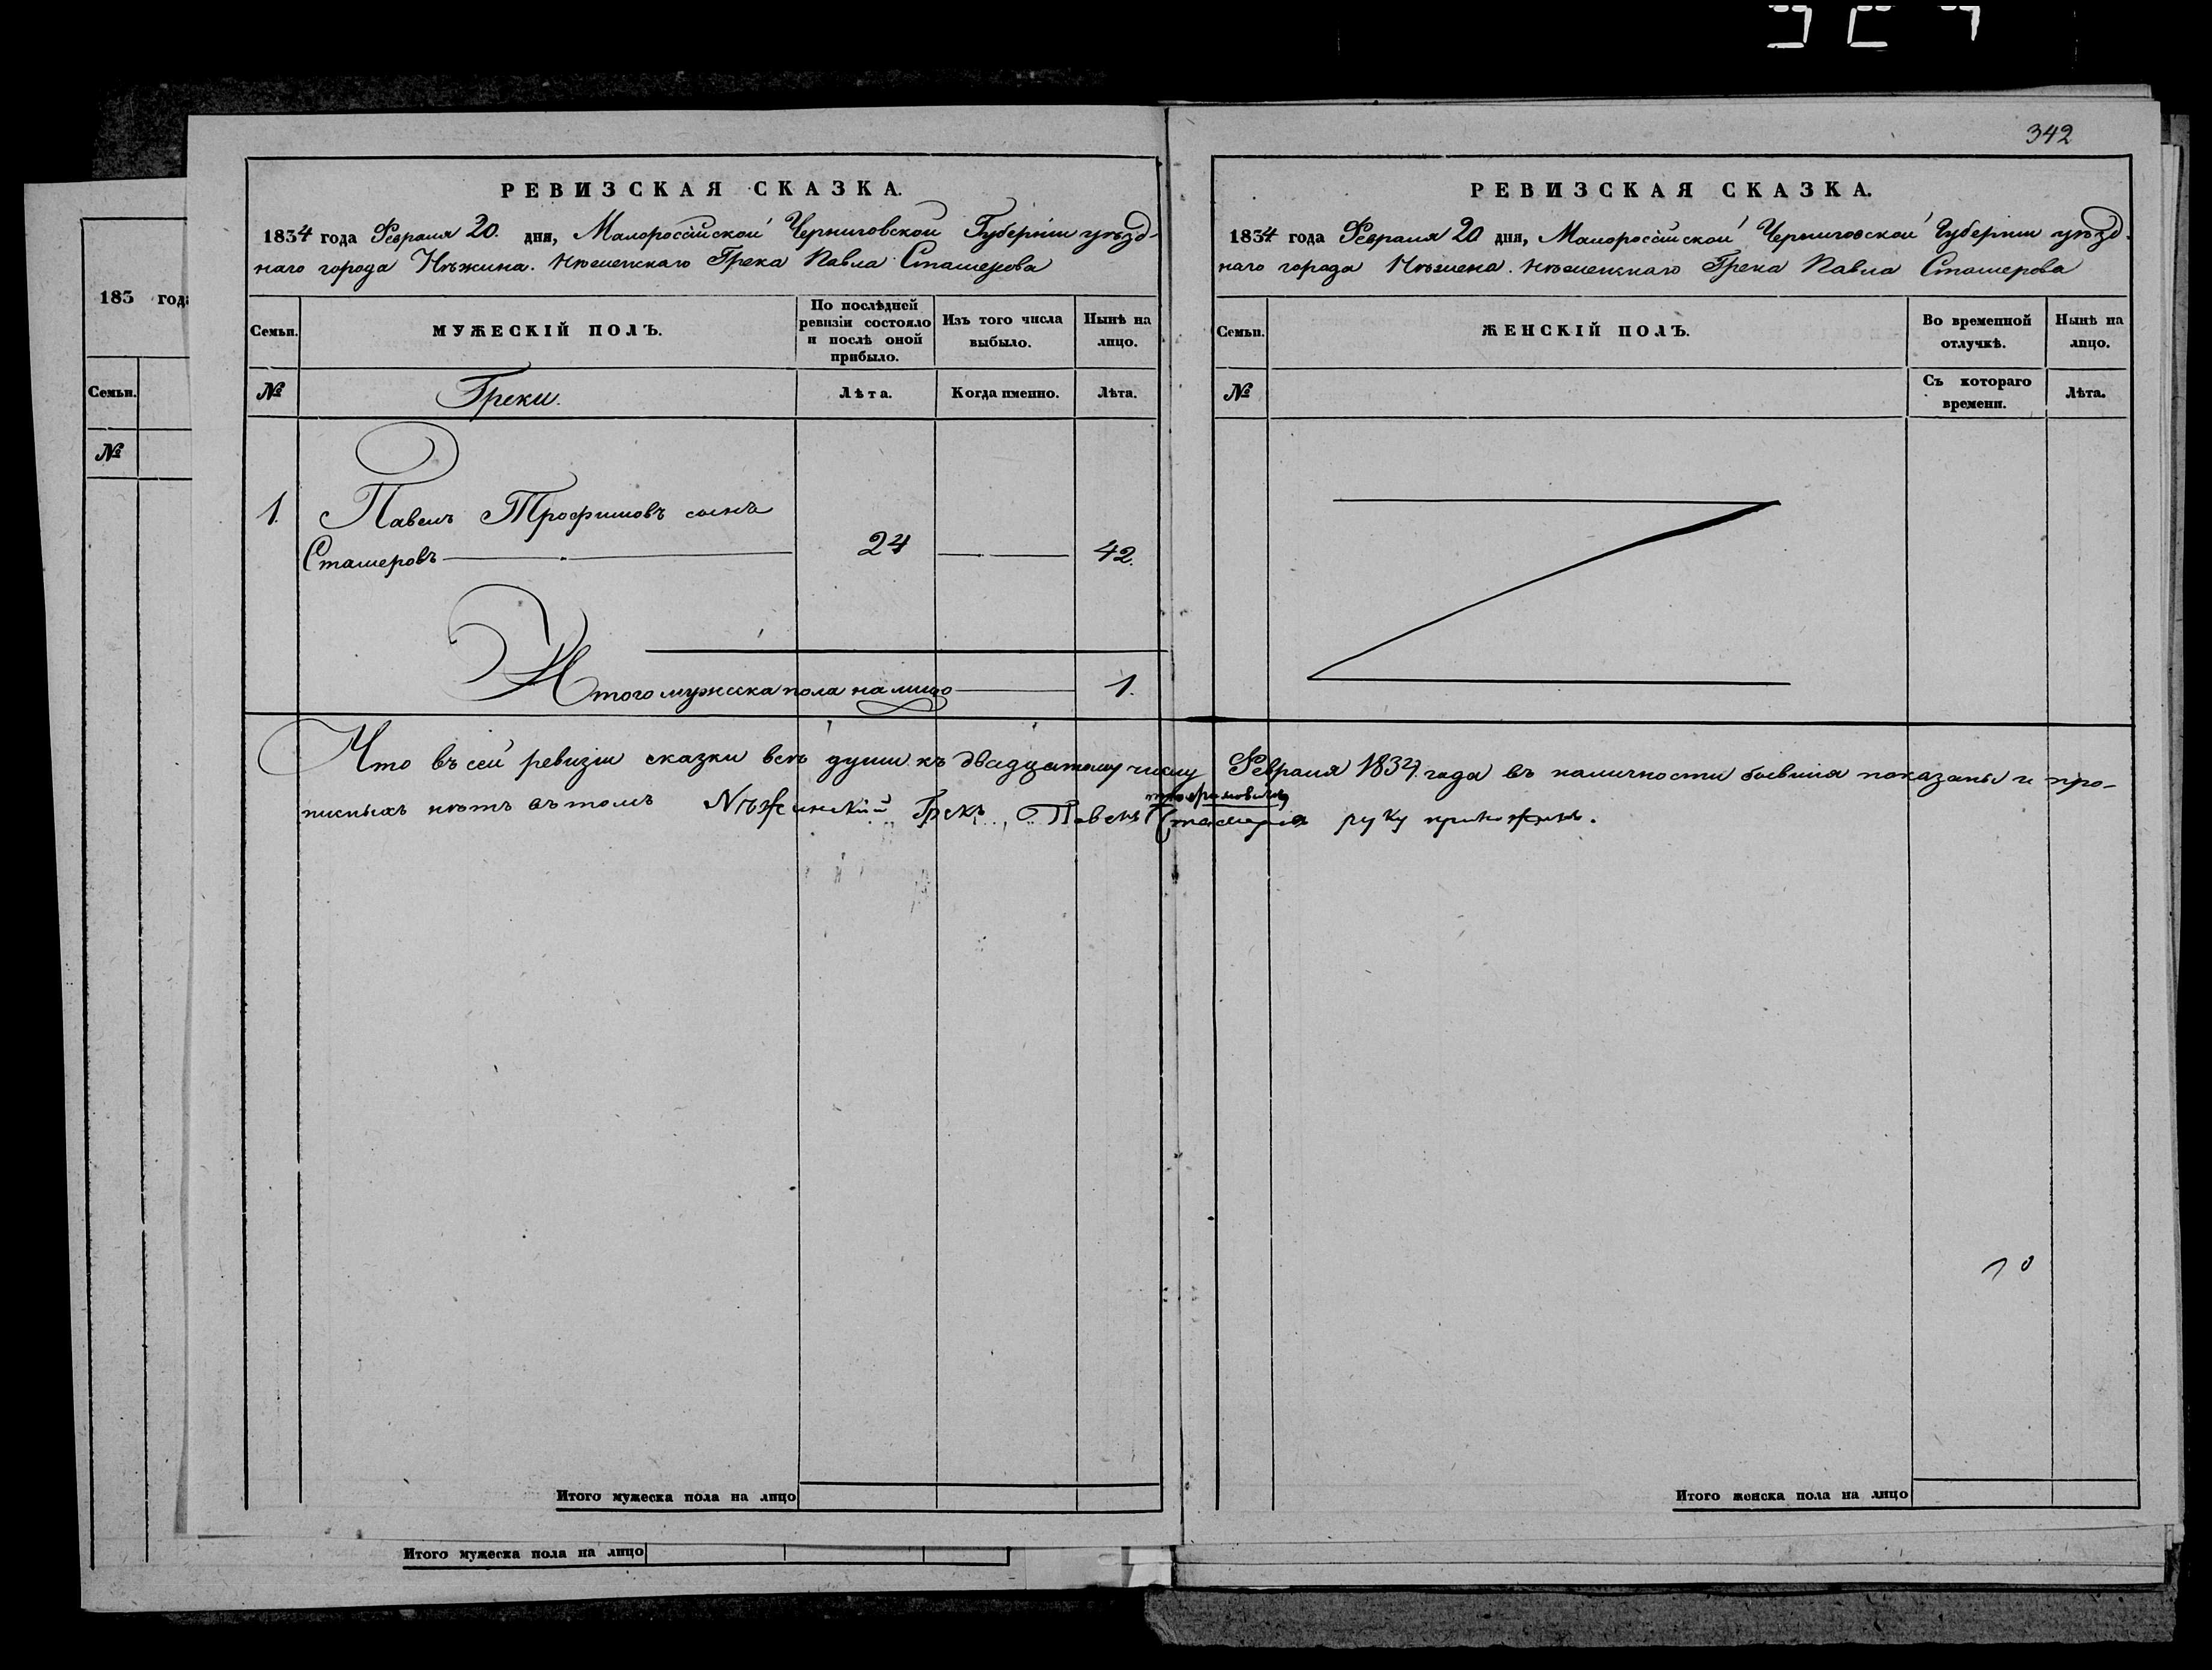 342
РЕВИЗСКАЯ СКАЗКА.
1834 года Февраля 20. дня, Малороссійской Черниговской Губерніи уѣзд-
наго города Нѣжина. Нѣжинскаго Грека Павла Сташерова
Семьи.
МУЖЕСКІЙ ПОЛЪ.
По послѣдней ревизіи состояло и послѣ оной прибыло.
Изъ того числа выбыло.
Нынѣ на лицо.
№
Греки.
Лѣта.
Когда именно.
Лѣта.
1. Павелъ Трофимовъ сынъ
Сташеровъ 24 42.
Итого мужеска пола на лицо 1.
РЕВИЗСКАЯ СКАЗКА.
1834 года Февраля 20 дня, Малороссійской Черниговской Губерніи уѣзд-
наго города Нѣжина. Нѣжинскаго Грека Павла Сташерова
Семьи.
ЖЕНСКІЙ ПОЛЪ.
Во временной отлучкѣ.
Нынѣ на лицо.
№
Съ котораго времени.
Лѣта.
Что въ сей ревизіи сказки всѣ души къ двадцатому числу Февраля 1834 года въ наличности бывшія показаны и про-
писныхъ нѣтъ въ томъ Нѣжинскій Грекъ Павелъ руку приложилъ.
10
Итого мужеска пола на лицо
Итого женска пола на лицо
183 года
Семьи.
№
Итого мужеска пола на лицо